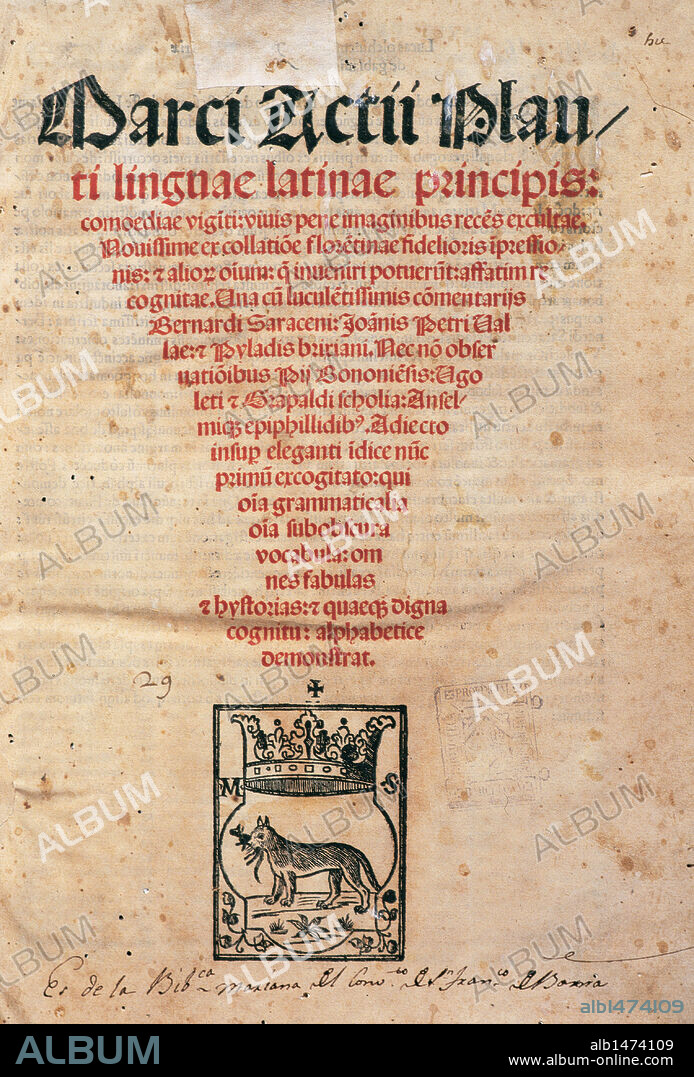 Marci Actii Plau/
ti linguae latinae principis:
comoediae vigīti: viuis pene imaginibus recēs excultae.
Nouissime ex collatiōe florētinae fidelioris īpressio
nis: ⁊ alioꝝ oīum: q̄ inueniri potuerūt: affatim re
cognitae. Una cū luculētissimis cōmentarijs
Bernardi Saraceni: Joānis Petri Ual
lae: ⁊ Pyladis brixiani. Nec nō obser
uatiōibus Pij Bononiēsis: Ugo
leti ⁊ Grapaldi scholia: Ansel-
miqꝫ epiphillidibꝰ. Adiecto
insuꝑ eleganti īdice nūc
primū excogitato: qui
oīa grammaticalia
oīa subobscura
vocabula: om
nes fabulas
⁊ hystorias: ⁊ quaeqꝫ digna
cognitu: alphabetice
demonstrat.
29
M S
Es de la Bib.ca mariana del Conv.to de S.n Fran.co de Borja
ALBUM
alb1474109
alb1474109
www.album-online.com